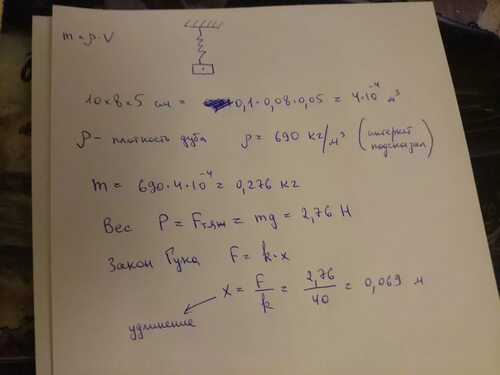 m = ρ · V
10 × 8 × 5 см = 0,1 · 0,08 · 0,05 = 4 · 10⁻⁴ м³
ρ – плотность дуба ρ = 690 кг/м³ (интернет подсказал)
m = 690 · 4 · 10⁻⁴ = 0,276 кг
Вес P = Fтяж = mg = 2,76 Н
Закон Гука F = k · x
x = F/k = 2,76/40 = 0,069 м
удлинение